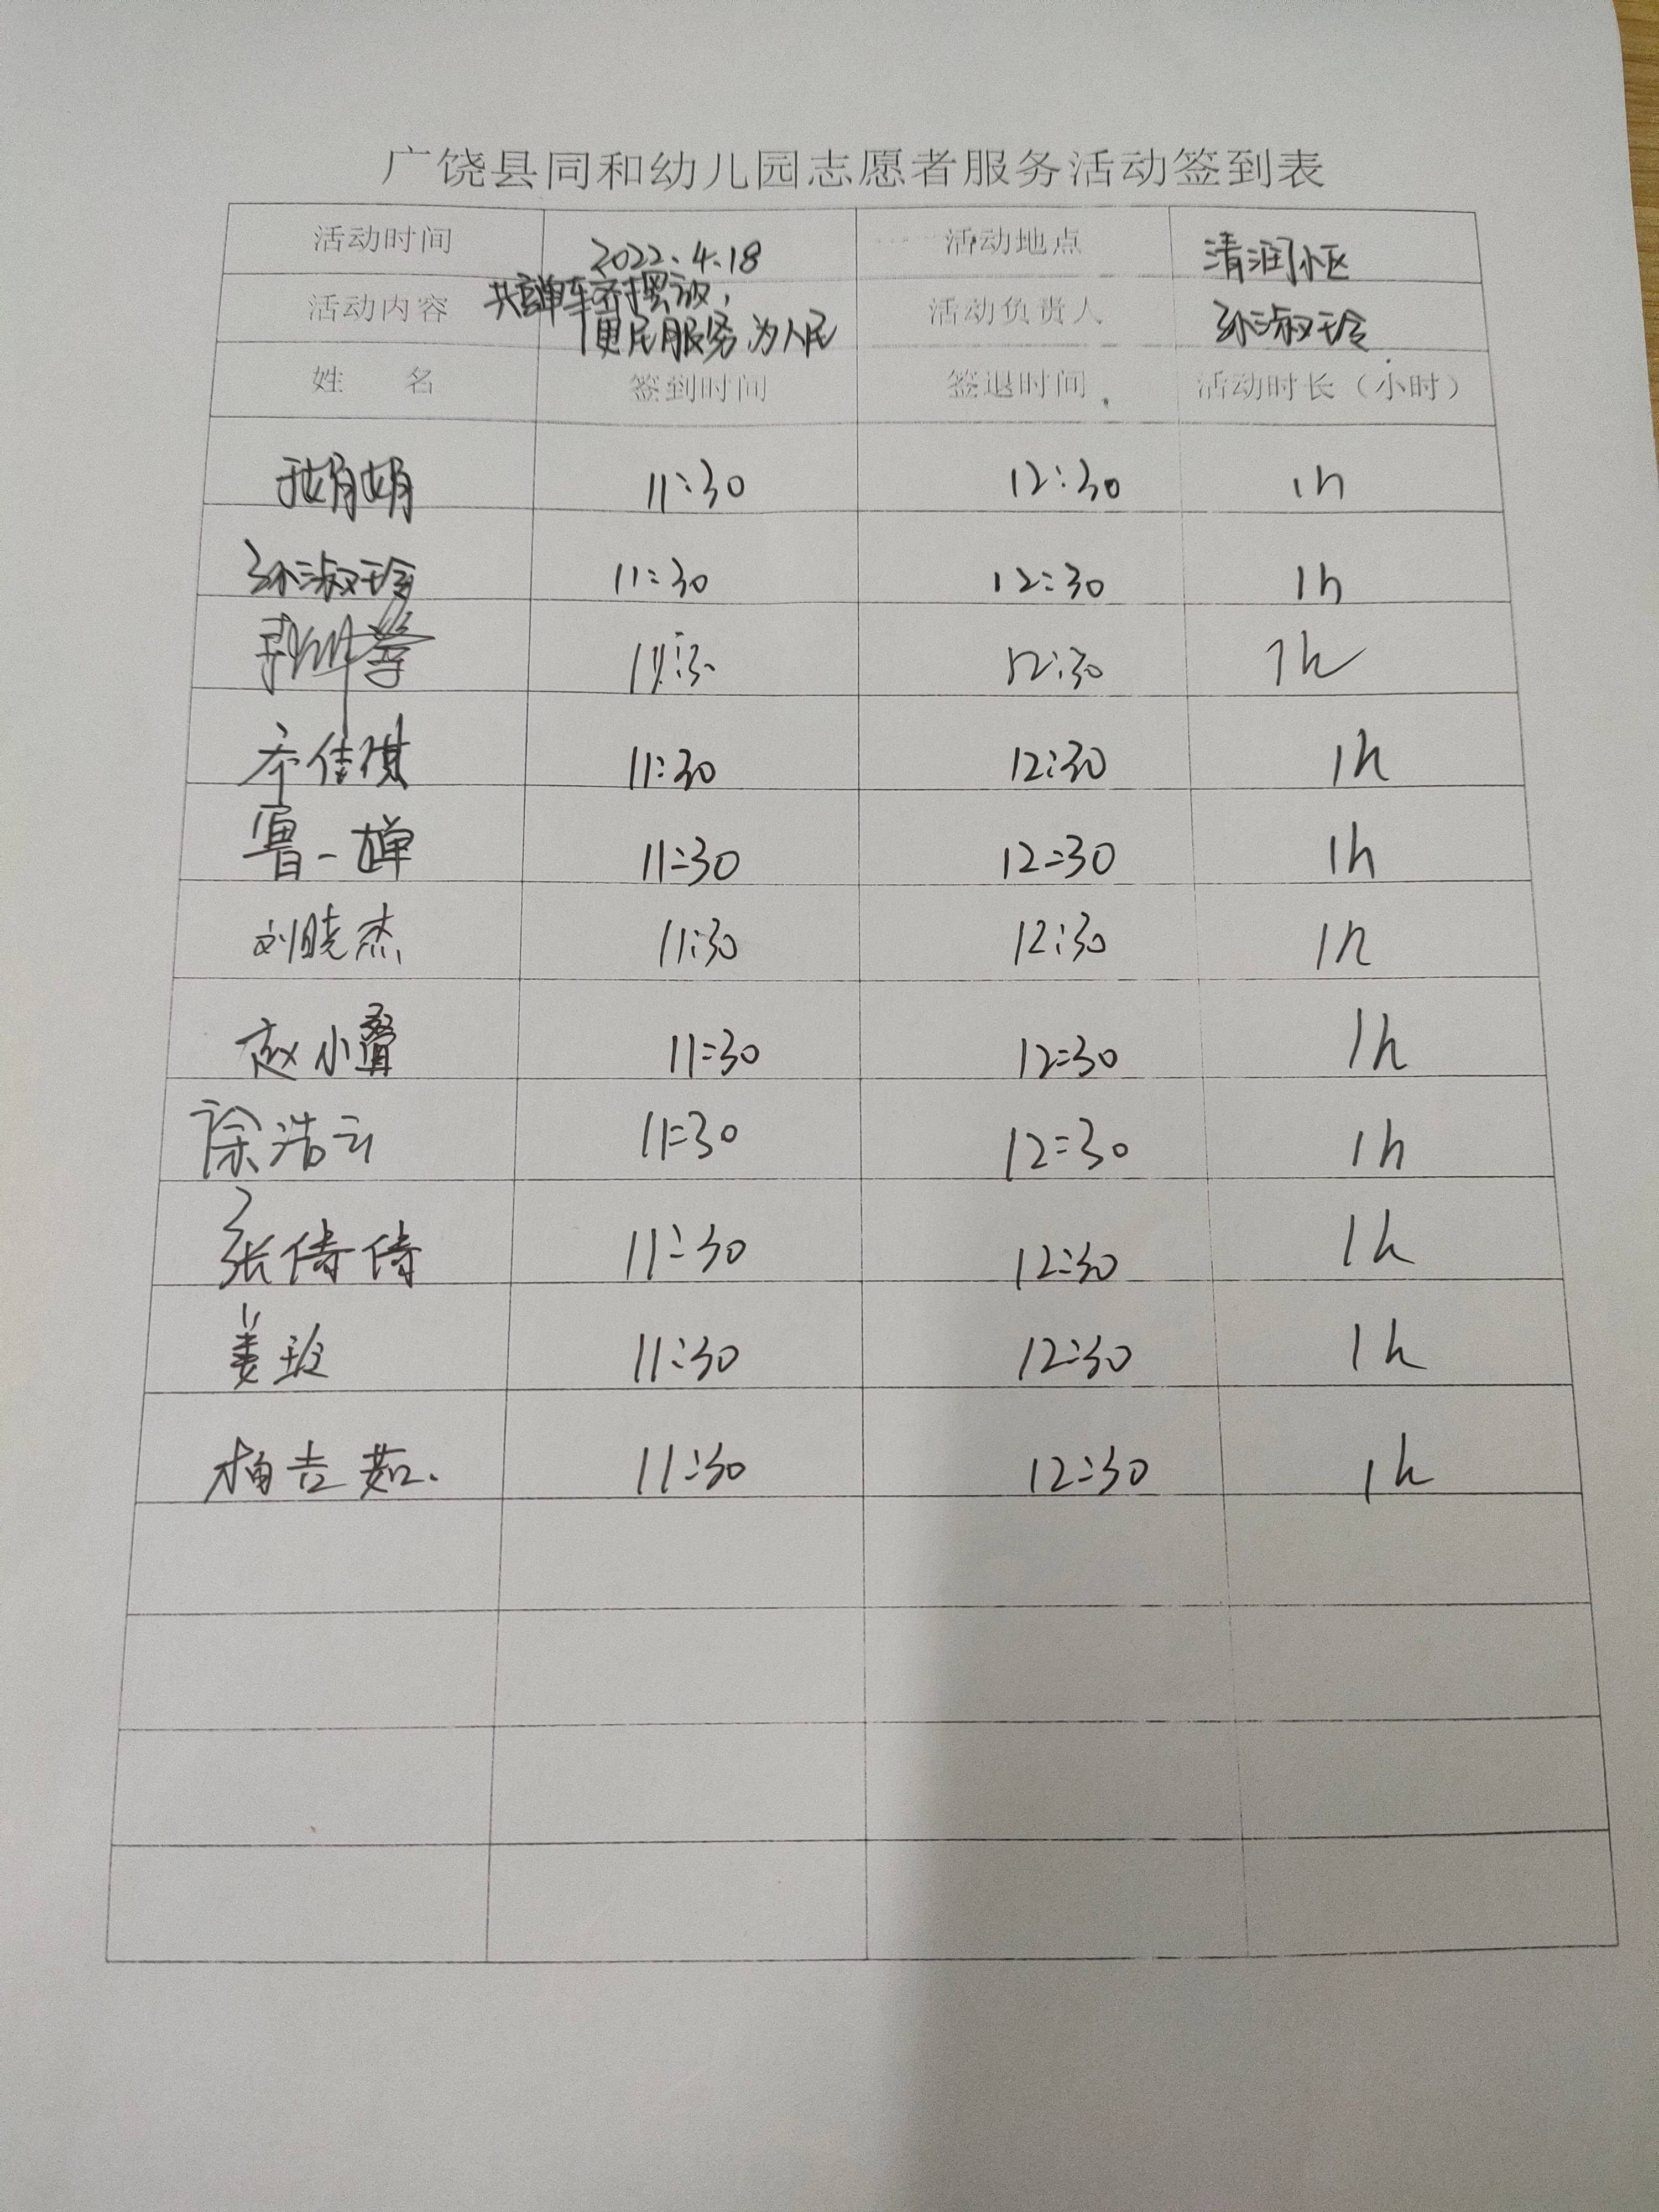 广饶县同和幼儿园志愿者服务活动签到表
活动时间 2022.4.18 活动地点 清润小区
活动内容 共享单车齐摆放, 便民服务为人民 活动负责人 孙淑玲
姓 名 签到时间 签退时间 活动时长（小时）
于娟娟 11:30 12:30 1h
孙淑玲 11:30 12:30 1h
11:30 12:30 1h
乔佳琪 11:30 12:30 1h
鲁一婵 11:30 12:30 1h
刘晓杰 11:30 12:30 1h
赵小叠 11:30 12:30 1h
徐浩云 11:30 12:30 1h
张倩倩 11:30 12:30 1h
姜玢 11:30 12:30 1h
吉茹. 11:30 12:30 1h